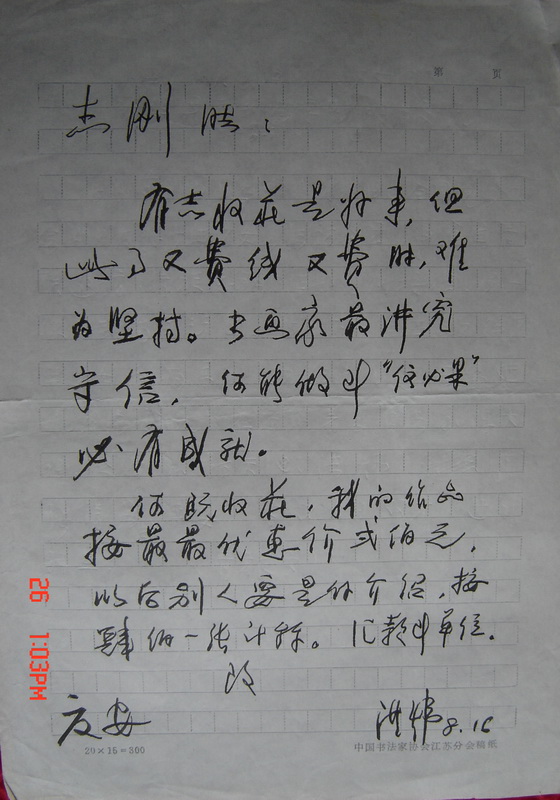 第 页
杰刚
有志收藏是好事,但
此事又费钱又费时,难
为坚持。书画家最讲究
守信,你能做到"言必果"
必有成就。
你既收藏,我的作品
按最最优惠价贰佰元,
以后别人要是你介绍,按
肆佰一张计算。汇款到单位。
即
友安 洪 8.16
26 1:03PM
20×15=300 中国书法家协会江苏分会稿纸